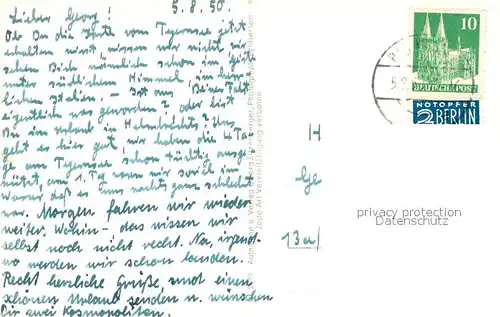 5. 8. 50.
Lieber Georg!
Ob Du die Karte vom Tegernsee jetzt
erhalten wirst, wissen wir nicht, wir
sehen Dich nämlich schon im Geiste
unter südlichem Himmel, im herr-
lichen Italien. — Ist aus Deiner Fahrt
eigentlich was geworden? oder bist
Du im Urlaub in Helmbrechts? Uns
geht es hier gut, wir haben die 4 Ta-
ge am Tegernsee schon tüchtig ausge-
nützt, am 1. Tag
waren, daß es Enns nachts ganz schlecht
war. Morgen fahren wir wieder
weiter, Wohin - das wissen wir
selbst noch nicht recht. Na, irgend-
wo werden wir schon landen.
Recht herzliche Grüße, und einen
schönen Urlaub senden u. wünschen
Dir zwei Kosmopoliten.
H
Ge
13a/
10
DEUTSCHE POST
NOTOPFER
2 BERLIN
privacy protection